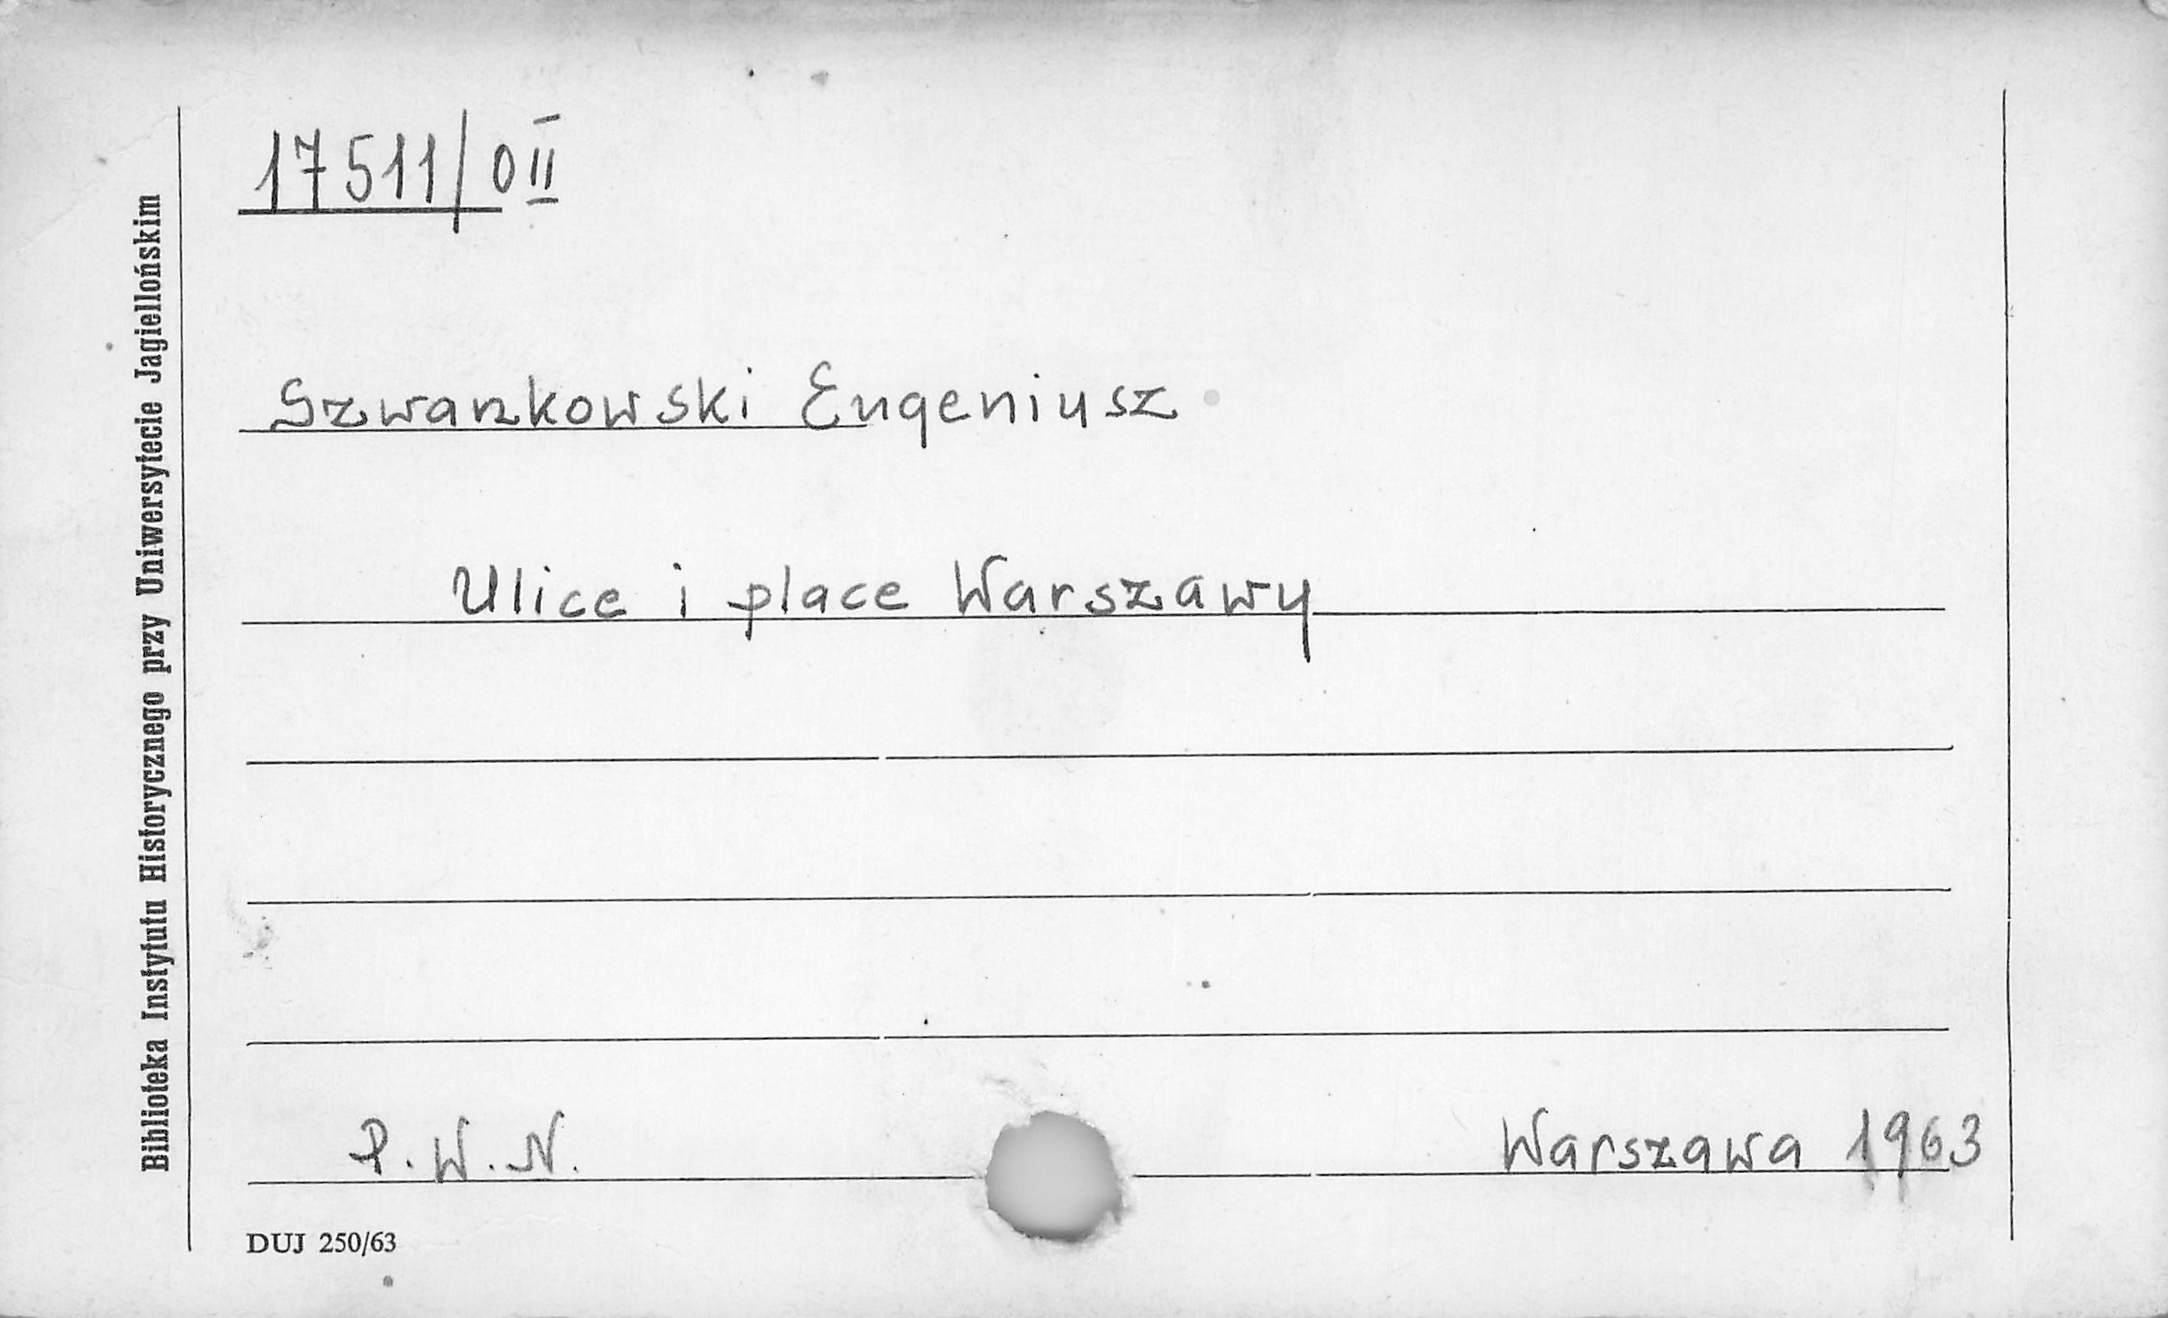 17511/O II
Szwankowski Eugeniusz
Ulice i place Warszawy
P. W. N.
Warszawa 1963
DUJ 250/63
Biblioteka Instytutu Historycznego przy Uniwersytecie Jagiellońskim